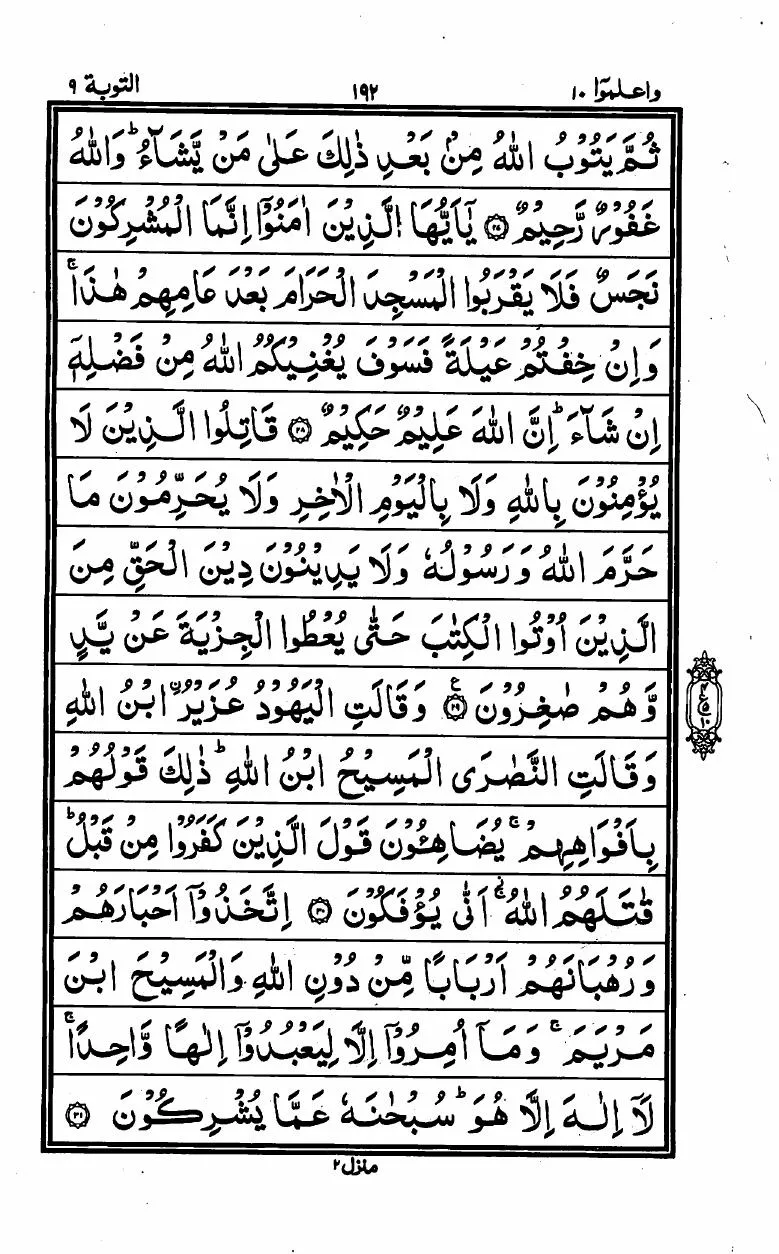 واعلموٓا ١٠
١٩٢
التوبة ٩
ثُمَّ يَتُوْبُ اللّٰهُ مِنْۢ بَعْدِ ذٰلِكَ عَلٰى مَنْ يَّشَآءُ ؕ وَاللّٰهُ
غَفُوْرٌ رَّحِيْمٌ ۝٢٧ يٰۤاَيُّهَا الَّذِيْنَ اٰمَنُوْۤا اِنَّمَا الْمُشْرِكُوْنَ
نَجَسٌ فَلَا يَقْرَبُوا الْمَسْجِدَ الْحَرَامَ بَعْدَ عَامِهِمْ هٰذَا ۚ
وَاِنْ خِفْتُمْ عَيْلَةً فَسَوْفَ يُغْنِيْكُمُ اللّٰهُ مِنْ فَضْلِهٖۤ
اِنْ شَآءَ ؕ اِنَّ اللّٰهَ عَلِيْمٌ حَكِيْمٌ ۝٢٨ قَاتِلُوا الَّذِيْنَ لَا
يُؤْمِنُوْنَ بِاللّٰهِ وَلَا بِالْيَوْمِ الْاٰخِرِ وَلَا يُحَرِّمُوْنَ مَا
حَرَّمَ اللّٰهُ وَرَسُوْلُهٗ وَلَا يَدِيْنُوْنَ دِيْنَ الْحَقِّ مِنَ
الَّذِيْنَ اُوْتُوا الْكِتٰبَ حَتّٰى يُعْطُوا الْجِزْيَةَ عَنْ يَّدٍ
وَّهُمْ صٰغِرُوْنَ ۝٢٩ ع وَقَالَتِ الْيَهُوْدُ عُزَيْرُ ِۨابْنُ اللّٰهِ
وَقَالَتِ النَّصٰرَى الْمَسِيْحُ ابْنُ اللّٰهِ ؕ ذٰلِكَ قَوْلُهُمْ
بِاَفْوَاهِهِمْ ۚ يُضَاهِـُٔوْنَ قَوْلَ الَّذِيْنَ كَفَرُوْا مِنْ قَبْلُ ؕ
قٰتَلَهُمُ اللّٰهُ ۚ اَنّٰى يُؤْفَكُوْنَ ۝٣٠ اِتَّخَذُوْۤا اَحْبَارَهُمْ
وَرُهْبَانَهُمْ اَرْبَابًا مِّنْ دُوْنِ اللّٰهِ وَالْمَسِيْحَ ابْنَ
مَرْيَمَ ۚ وَمَاۤ اُمِرُوْۤا اِلَّا لِيَعْبُدُوْۤا اِلٰهًا وَّاحِدًا ۚ
لَاۤ اِلٰهَ اِلَّا هُوَ ؕ سُبْحٰنَهٗ عَمَّا يُشْرِكُوْنَ ۝٣١
منزل٢